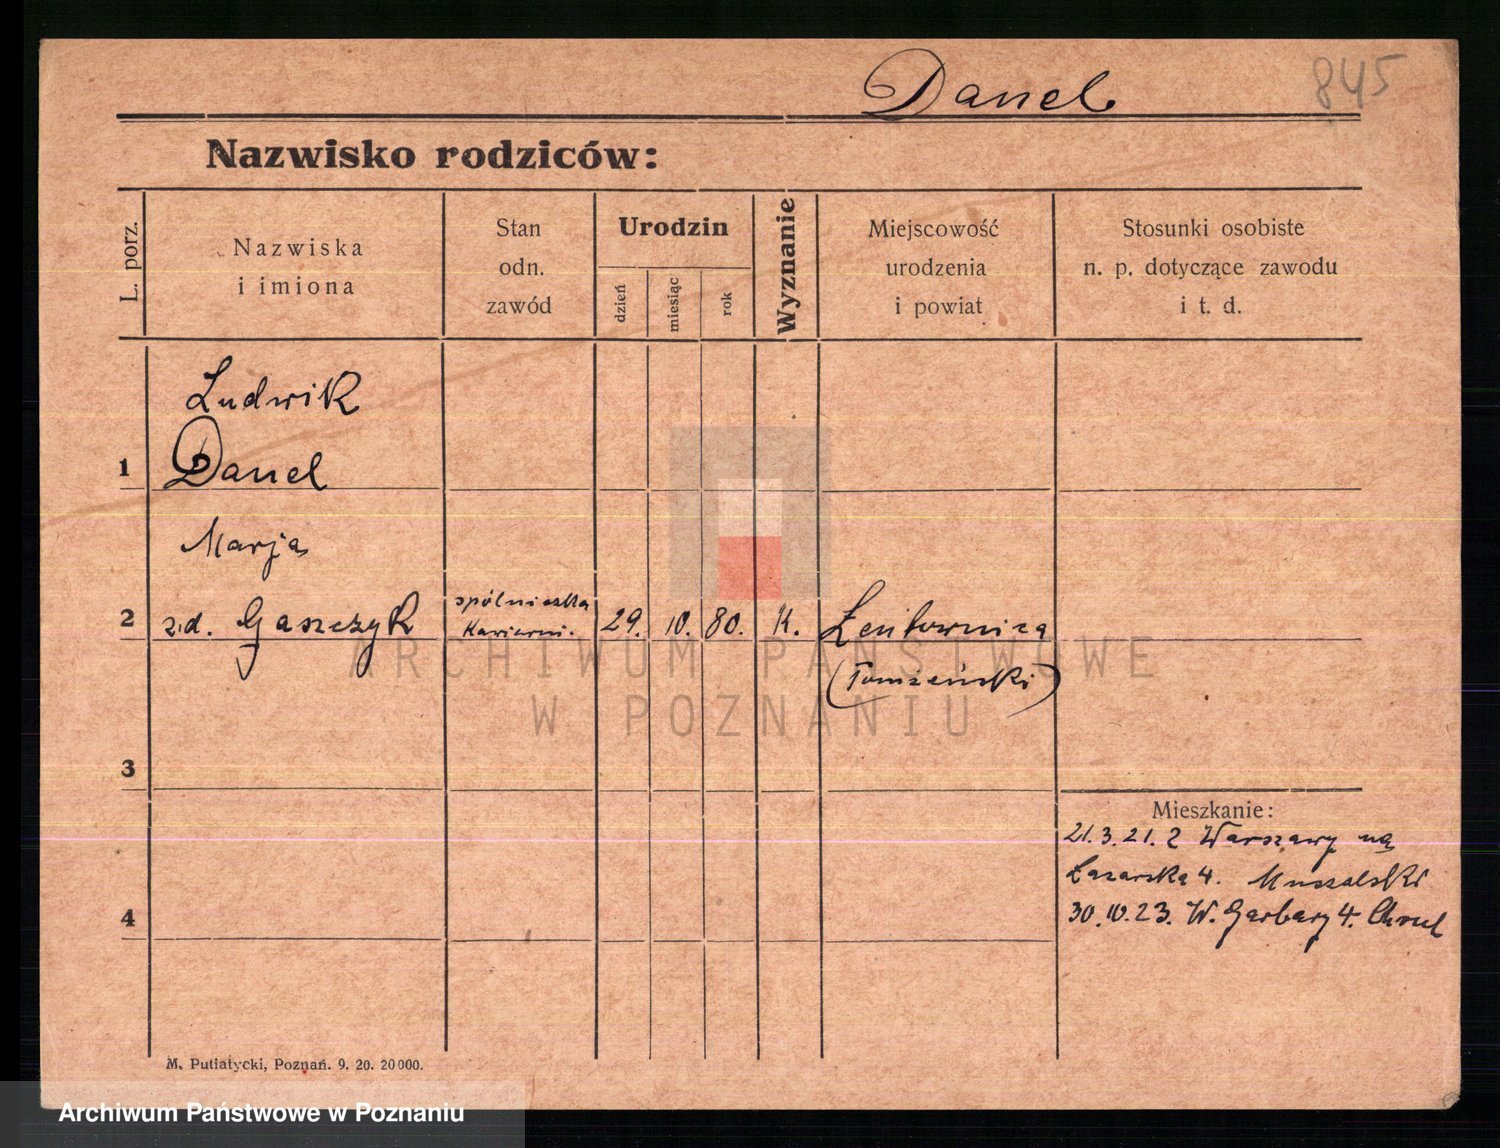 Danel
845
Nazwisko rodziców:
L. porz.
Nazwiska
i imiona
Stan
odn.
zawód
Urodzin
dzień
miesiąc
rok
Wyznanie
Miejscowość
urodzenia
i powiat
Stosunki osobiste
n. p. dotyczące zawodu
i t. d.
Ludwik
1 Danel
Marja
spólniczka
2 z.d. Gaszczyk kawiarni. 29. 10. 80. K.
ARCHIWUM PAŃSTWOWE
W POZNANIU
3
Mieszkanie:
21.3.21. z Warszawy na
Łazarska 4. Muszalski
4
30.10.23. W. Garbary 4.
M. Putiatycki, Poznań. 9. 20. 20000.
Archiwum Państwowe w Poznaniu